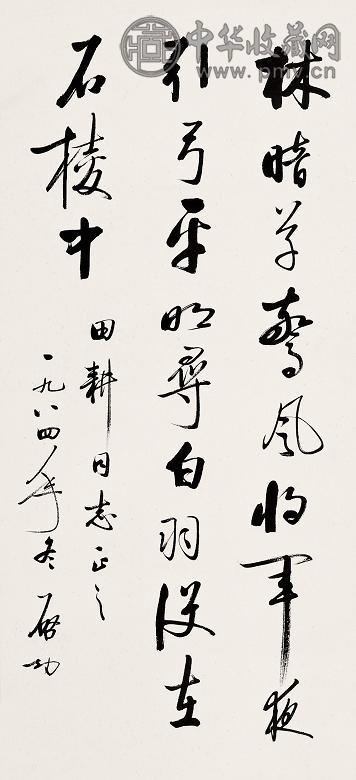 中华收藏网
www.pmv.cn
林暗草驚风将軍夜
引弓平明尋白羽没在
石棱中
田耕同志正之
一九八四年冬 启功